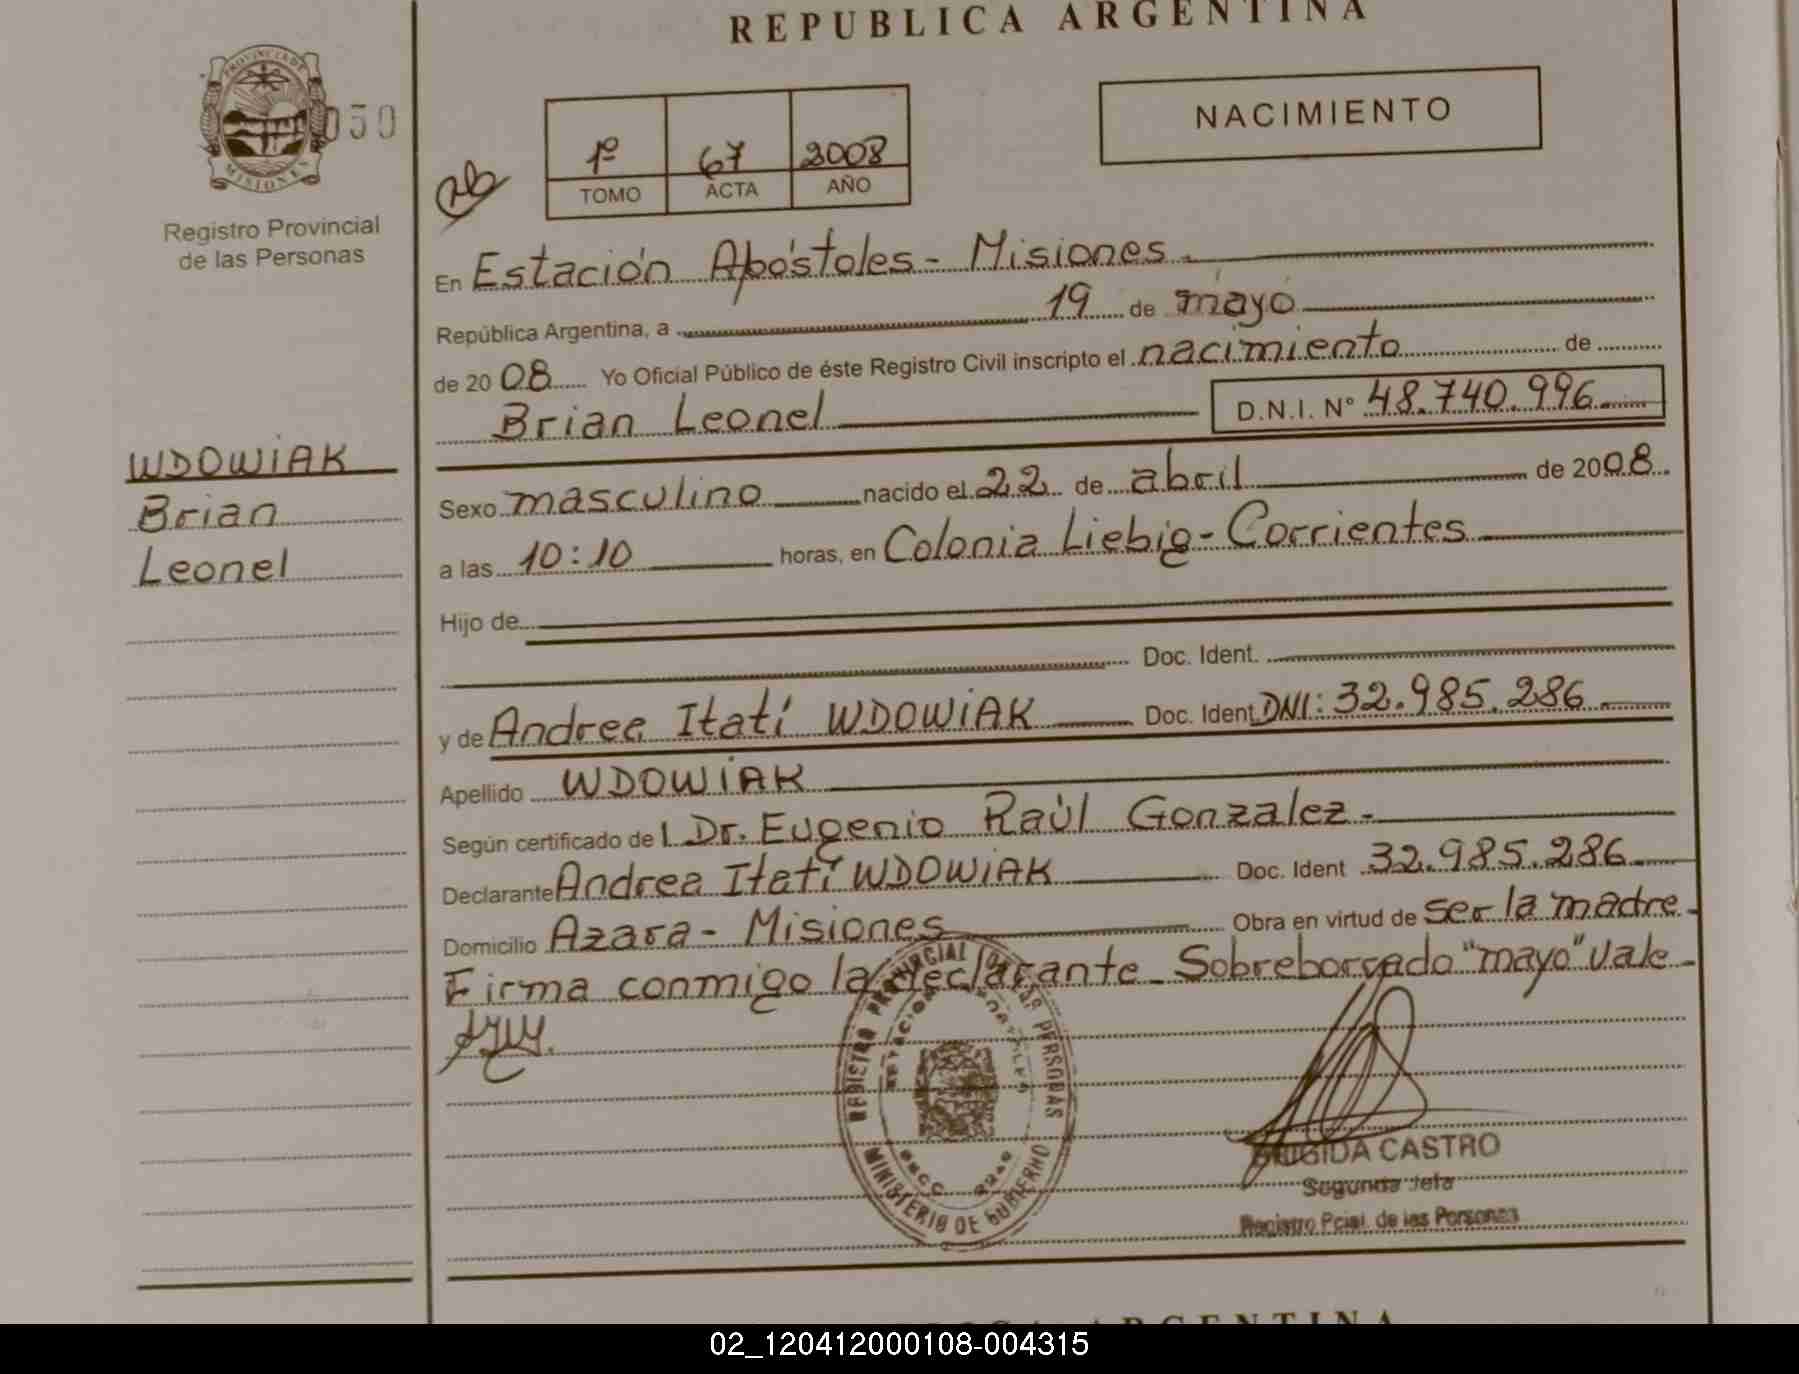 REPUBLICA ARGENTINA
PROVINCIA DE
MISIONES
050
Registro Provincial
de las Personas
1º 67 2008
TOMO ACTA AÑO
NACIMIENTO
En Estación Apóstoles - Misiones.
República Argentina, a 19 de mayo
de 2008 Yo Oficial Público de éste Registro Civil inscripto el nacimiento de
Brian Leonel D.N.I. Nº 48.740.996
WDOWiAK
Brian
Leonel
Sexo masculino nacido el 22 de abril de 2008
a las 10:10 horas, en Colonia Liebig - Corrientes
Hijo de
Doc. Ident.
y de Andrea Itatí WDOWiAK Doc. Ident DNI: 32.985.286
Apellido WDOWiAK
Según certificado de l Dr. Eugenio Raúl Gonzalez -
Declarante Andrea Itatí WDOWiAK Doc. Ident 32.985.286
Domicilio Azara - Misiones Obra en virtud de ser la madre -
Firma conmigo la declarante - Sobreborrado "mayo" vale -
REGISTRO PROVINCIAL DE LAS PERSONAS
MINISTERIO DE GOBIERNO
BRIGIDA CASTRO
Segunda Jefa
Registro Pcial. de las Personas
ARGENTINA
02_120412000108-004315